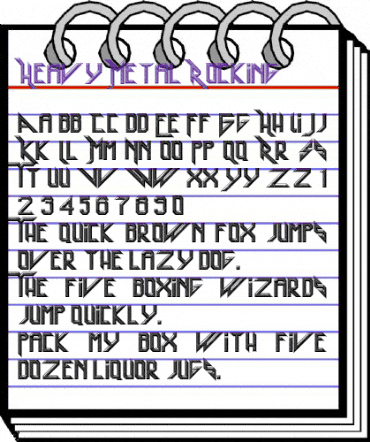 Heavy Metal Rocking
Aa Bb Cc Dd Ee Ff Gg Hh Ii Jj
Kk Ll Mm Nn Oo Pp Qq Rr Ss
Tt Uu Vv Ww Xx Yy Zz 1
2 3 4 5 6 7 8 9 0
The quick brown fox jumps
over the lazy dog.
The five boxing wizards
jump quickly.
Pack my box with five
dozen liquor jugs.